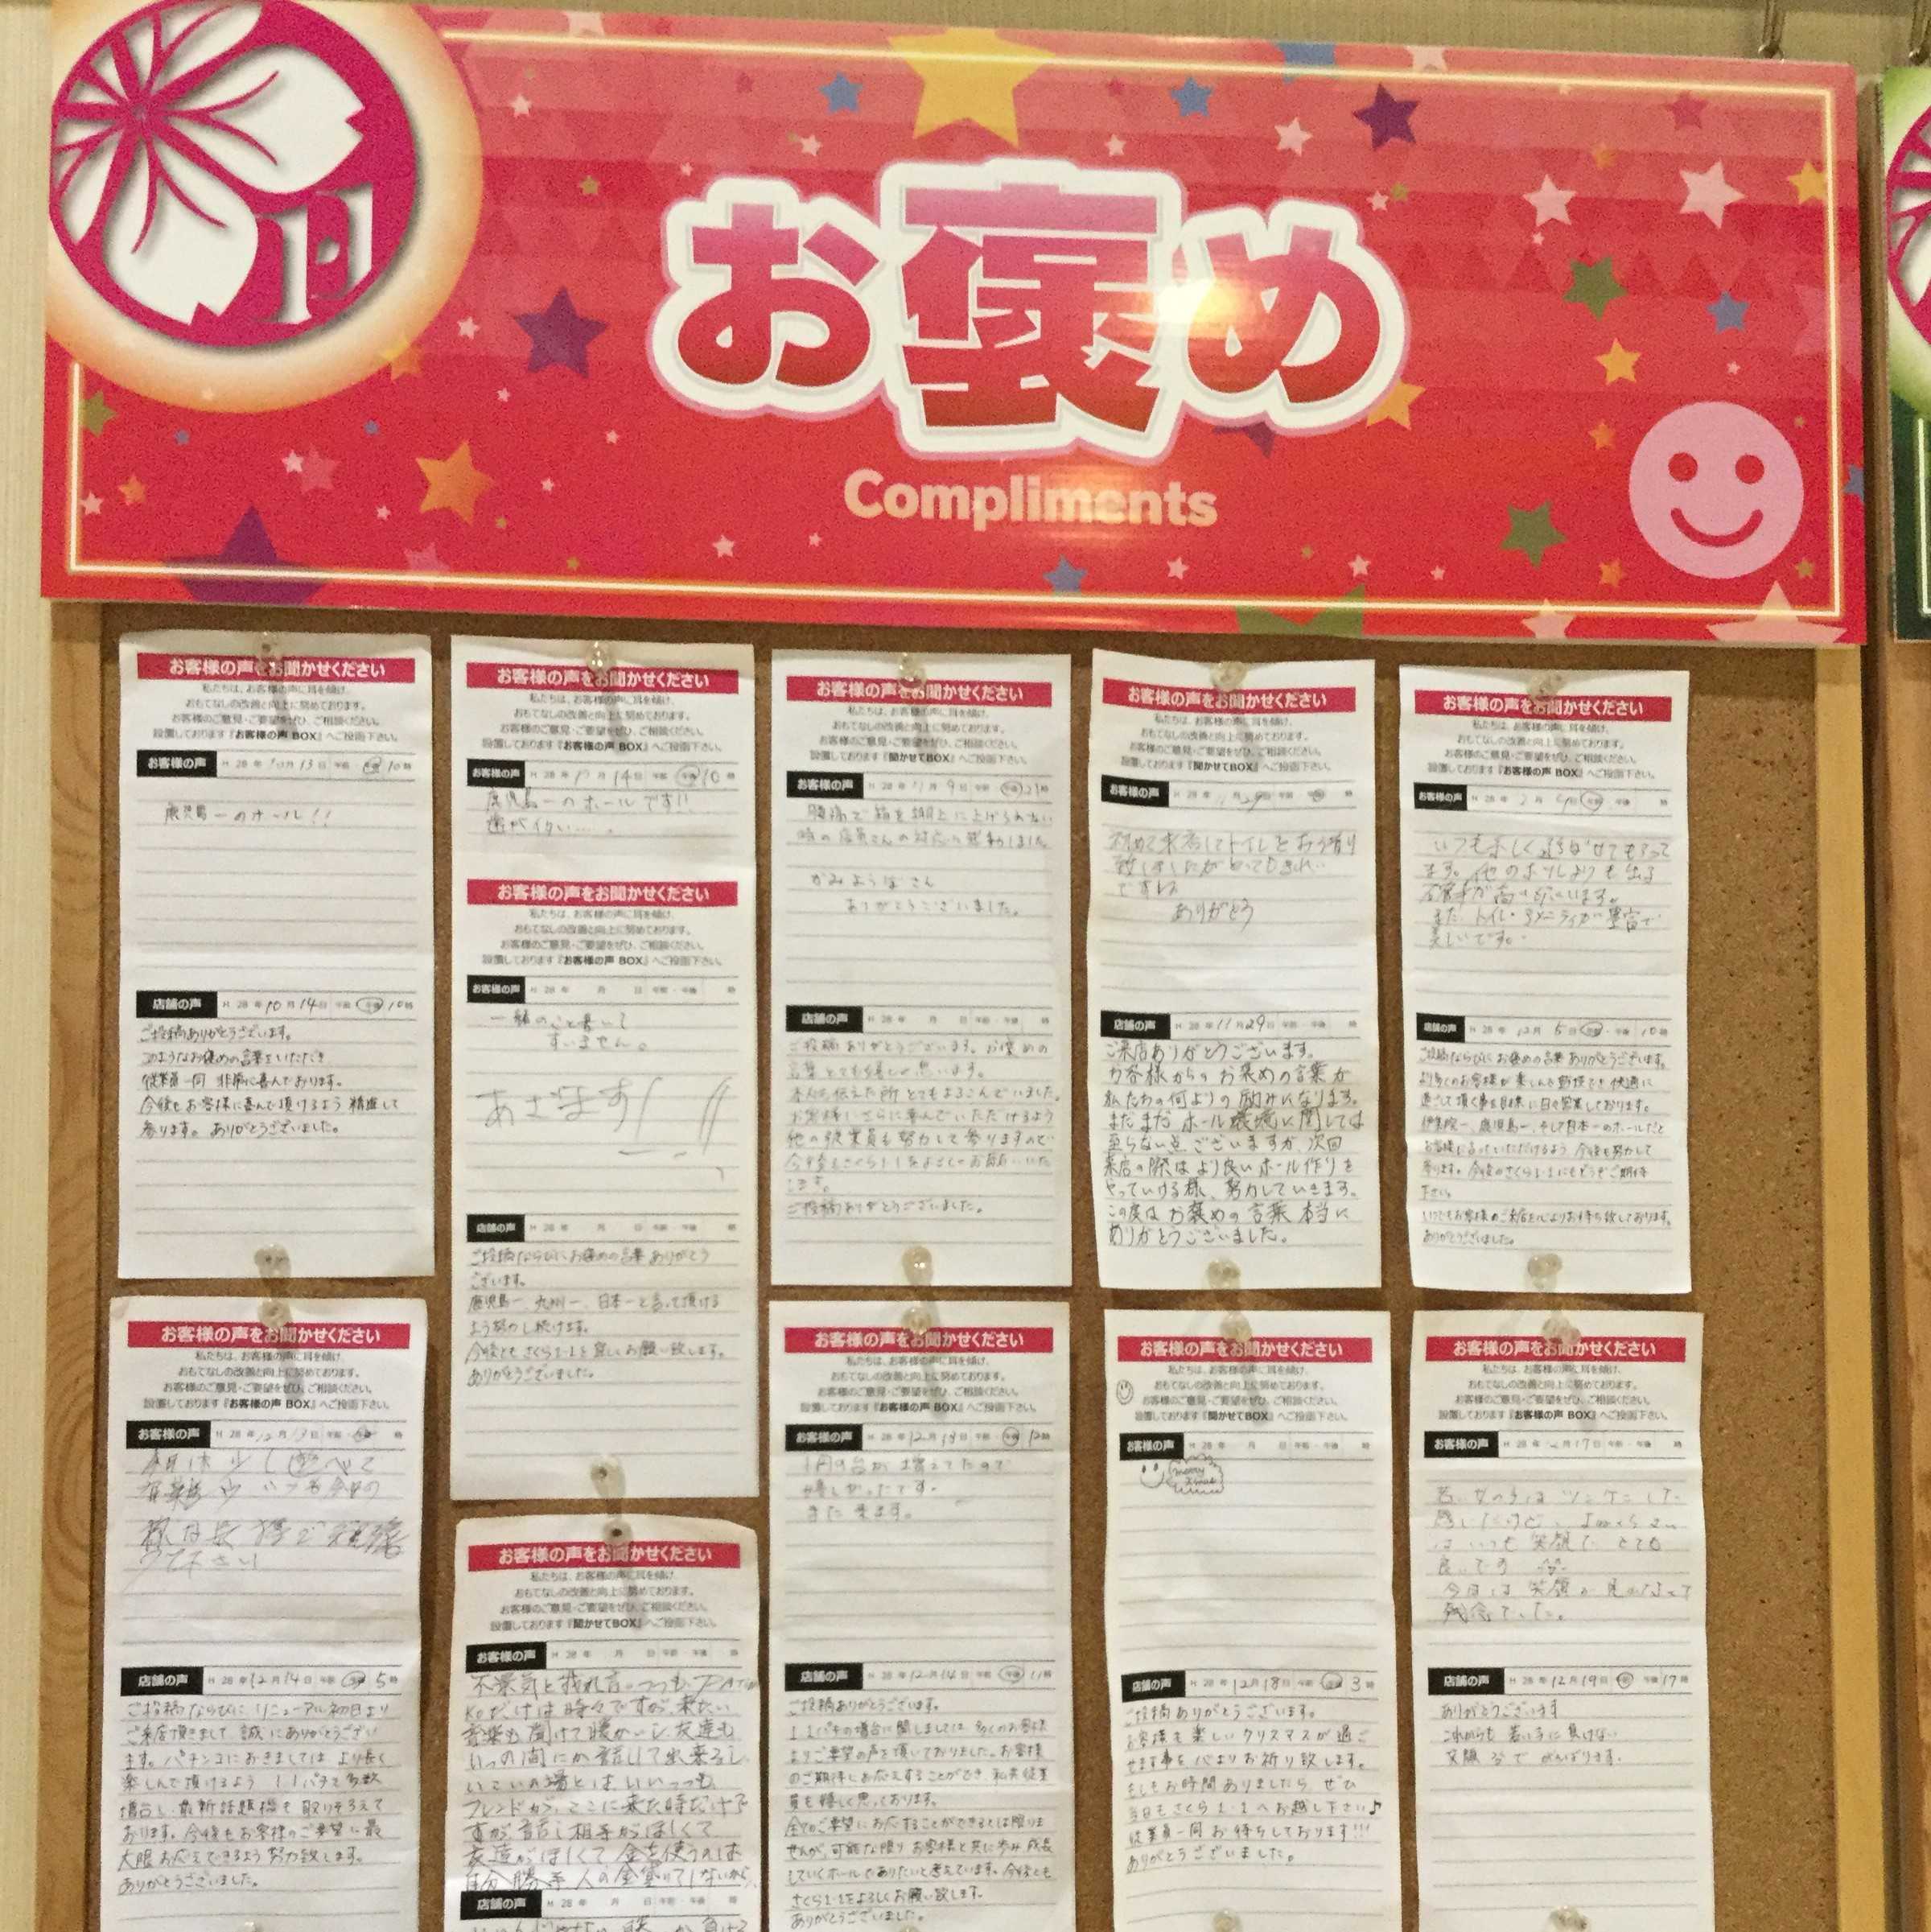 お褒め
Compliments
お客様の声をお聞かせください
私たちは、お客様の声に耳を傾け、
おもてなしの改善と向上に努めております。
お客様のご意見・ご要望をぜひ、ご相談ください。
設置しております『お客様の声 BOX』へご投函下さい。
お客様の声 H 28 年 10月 13日 午前・午後 10時
鹿児島一のホール!!
店舗の声 H 28 年 10月 14日 午前・午後 10時
ご投稿ありがとうございます。
このようなお褒めの言葉をいただき
従業員一同 非常に喜んでおります。
今後もお客様に喜んで頂けるよう 精進して
参ります。ありがとうございました。
お客様の声をお聞かせください
私たちは、お客様の声に耳を傾け、
おもてなしの改善と向上に努めております。
お客様のご意見・ご要望をぜひ、ご相談ください。
設置しております『お客様の声 BOX』へご投函下さい。
お客様の声 H 28 年 10月 14日 午前・午後 10時
鹿児島一のホールです!!
お客様の声をお聞かせください
私たちは、お客様の声に耳を傾け、
おもてなしの改善と向上に努めております。
お客様のご意見・ご要望をぜひ、ご相談ください。
設置しております『お客様の声 BOX』へご投函下さい。
お客様の声 H 28 年 月 日 午前・午後 時
すいません。
あざます
店舗の声 H 28 年 月 日 午前・午後 時
ご投稿ならびにお褒めの言葉ありがとう
ございます。
鹿児島一、九州一、日本一と言って頂ける
よう努力し続けます。
今後とも さくら1・1を宜しくお願い致します。
ありがとうございました。
お客様の声をお聞かせください
私たちは、お客様の声に耳を傾け、
おもてなしの改善と向上に努めております。
お客様のご意見・ご要望をぜひ、ご相談ください。
設置しております『聞かせてBOX』へご投函下さい。
お客様の声 H 28 年 11月 9日 午前・午後 21時
腰痛で箱を棚上に上げられない
時の店員さんの対応に感動しました。
ありがとうございました。
店舗の声 H 28 年 月 日 午前・午後 時
ご投稿ありがとうございます。お褒めの
言葉とても嬉しく思います。
本人に伝えた所とてもよろこんでいました。
お客様にさらに喜んでいただけるよう
他の従業員も努力して参りますので
今後もさくら1・1をよろしくお願いいた
します。
ご投稿ありがとうございました。
お客様の声をお聞かせください
私たちは、お客様の声に耳を傾け、
おもてなしの改善と向上に努めております。
お客様のご意見・ご要望をぜひ、ご相談ください。
設置しております『聞かせてBOX』へご投函下さい。
お客様の声 H 28 年
初めて来店してトイレをお借り
致しましたがとってもきれい
ですね
ありがとう
店舗の声 H 28 年 11月 29日 午前・午後 時
ご来店ありがとうございます。
お客様からのお褒めの言葉が
私たちの何よりの励みになります。
まだまだ ホール環境に関しては
至らない点ございますが、次回
来店の際はより良いホール作りを
やっていける様、努力していきます。
この度はお褒めの言葉本当に
ありがとうございました。
お客様の声をお聞かせください
私たちは、お客様の声に耳を傾け、
おもてなしの改善と向上に努めております。
お客様のご意見・ご要望をぜひ、ご相談ください。
設置しております『お客様の声 BOX』へご投函下さい。
お客様の声 H 28 年
いつも楽しく遊ばせてもらって
ます。他のホールよりも出る
確率が高いと思います。
また トイレ・アメニティが豊富で
美しいです。
店舗の声 H 28 年 12月 5日 午前・午後 10時
ご投稿ならびにお褒めの言葉ありがとうございます。
より多くのお客様が楽しんで節度でき快適に
過ごして頂く事を目標に日々営業しております。
伊集院一、鹿児島一、そして日本一のホールだと
お客様に言っていただけるよう 今後も努力して
参ります。今後のさくら1・1にもどうぞご期待
下さい。
いつでもお客様のご来店を心よりお待ち致しております。
ありがとうございました。
お客様の声をお聞かせください
私たちは、お客様の声に耳を傾け、
おもてなしの改善と向上に努めております。
お客様のご意見・ご要望をぜひ、ご相談ください。
設置しております『お客様の声 BOX』へご投函下さい。
お客様の声 H 28 年 12月 13日
店舗の声 H 28 年 12月 14日 午前・午後 5時
ご投稿ならびに リニューアル初日より
ご来店頂きまして 誠にありがとうござい
ます。パチンコにおきましては より長く
楽しんで頂けるよう 1・1パチで多数
増台し、最新話題機も取りそろえて
おります。今後もお客様のご希望に最
大限お応えできるよう努力致します。
ありがとうございました。
お客様の声をお聞かせください
私たちは、お客様の声に耳を傾け、
おもてなしの改善と向上に努めております。
お客様のご意見・ご要望をぜひ、ご相談ください。
設置しております『聞かせてBOX』へご投函下さい。
お客様の声 H 28 年 月 日 午前・午後 時
だけは時々ですが、来たい
音楽も聞けて暖かいし友達も
いつの間にか会話して出来るし
フレンドが、ここに来た時だけで
すが話し相手がほしくて
友達がほしくて金を使うのは
店舗の声 H 28 年 月 日 午前・午後 時
お客様の声をお聞かせください
私たちは、お客様の声に耳を傾け、
おもてなしの改善と向上に努めております。
お客様のご意見・ご要望をぜひ、ご相談ください。
設置しております『お客様の声 BOX』へご投函下さい。
お客様の声 H 28 年 12月 13日 午前・午後 12時
1円の台が増えてたので
嬉しかったです。
また来ます。
店舗の声 H 28 年 12月 14日 午前・午後 11時
ご投稿ありがとうございます。
1・1パチの増台に関しましては、多くのお客様
よりご要望の声を頂いておりました。お客様
のご期待にお応えすることができ 私共従業
員も嬉しく思っております。
全てのご希望にお応することができるとは限りま
せんが、可能な限り お客様と共に歩み 成長
していくホールでありたいと考えています。今後とも
さくら1・1をよろしくお願い致します。
ありがとうございました。
お客様の声をお聞かせください
私たちは、お客様の声に耳を傾け、
おもてなしの改善と向上に努めております。
お客様のご意見・ご要望をぜひ、ご相談ください。
設置しております『聞かせてBOX』へご投函下さい。
お客様の声 H 28 年 月 日 午前・午後 時
merry
Xmas
店舗の声 H 28 年 12月 18日 午前・午後 3時
ご投稿ありがとうございます。
お客様も楽しいクリスマスが過ご
せます事を心よりお祈り致します。
もしもお時間ありましたら ぜひ
当日もさくら1・1へお越し下さい♪
従業員一同お待ちしております!!!
ありがとうございました。
お客様の声をお聞かせください
私たちは、お客様の声に耳を傾け、
おもてなしの改善と向上に努めております。
お客様のご意見・ご要望をぜひ、ご相談ください。
設置しております『お客様の声 BOX』へご投函下さい。
お客様の声 H 28 年 12月 17日 午前・午後 時
若い女の子はツンケンした
感じだけど
はいつも笑顔で とても
良いです
今日は 笑顔が見れなくて
残念でした。
店舗の声 H 28 年 12月 19日 午前・午後 17時
ありがとうございます
これからも 若い子に負けない
笑顔 で がんばります。